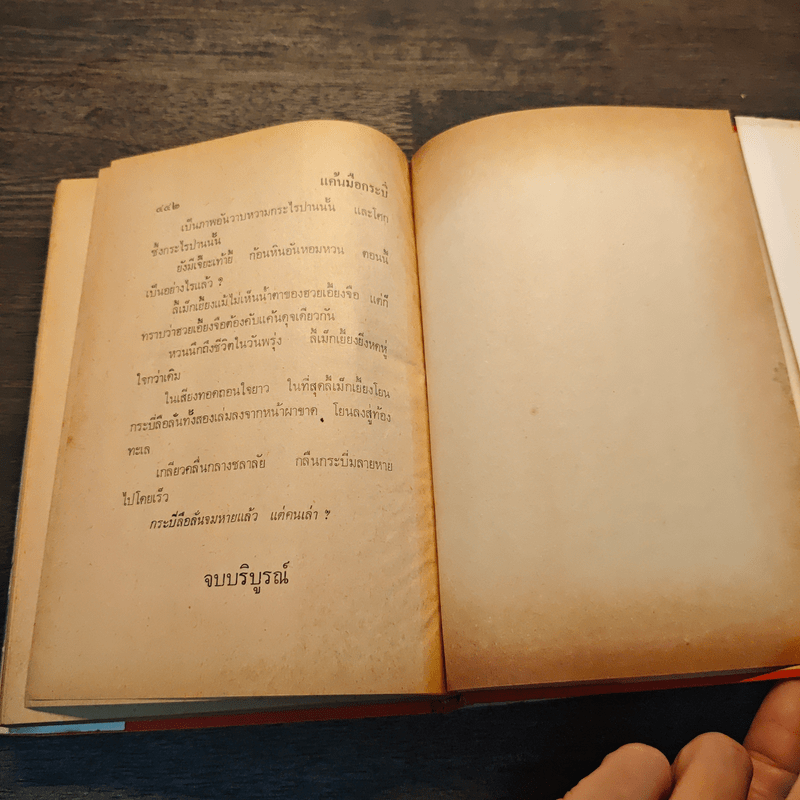 แค้นมือกระบี่
๔๔๒
เป็นภาพอันวาบหวามกระไรปานนั้น และโศก
ซึ้งกระไรปานนั้น
ยังมีเจี๊ยะเท้ายี้ ก้อนหินอันหอมหวน ตอนนี้
เป็นอย่างไรแล้ว ?
ลี้เม็กเอี้ยงแม้ไม่เห็นน้ำตาของฮวยเอี้ยงจือ แต่ก็
ทราบว่าฮวยเอี้ยงจือต้องคับแค้นดุจเดียวกัน
หวนนึกถึงชีวิตในวันพรุ่ง ลี้เม็กเอี้ยงยิ่งหดหู่
ใจกว่าเดิม
ในเสียงทอดถอนใจยาว ในที่สุดลี้เม็กเอี้ยงโยน
กระบี่ลือลั่นทั้งสองเล่มลงจากหน้าผาขาด โยนลงสู่ท้อง
ทะเล
เกลียวคลื่นกลางชลาลัย กลืนกระบี่มลายหาย
ไปโดยเร็ว
กระบี่ลือลั่นจมหายแล้ว แต่คนเล่า ?
จบบริบูรณ์